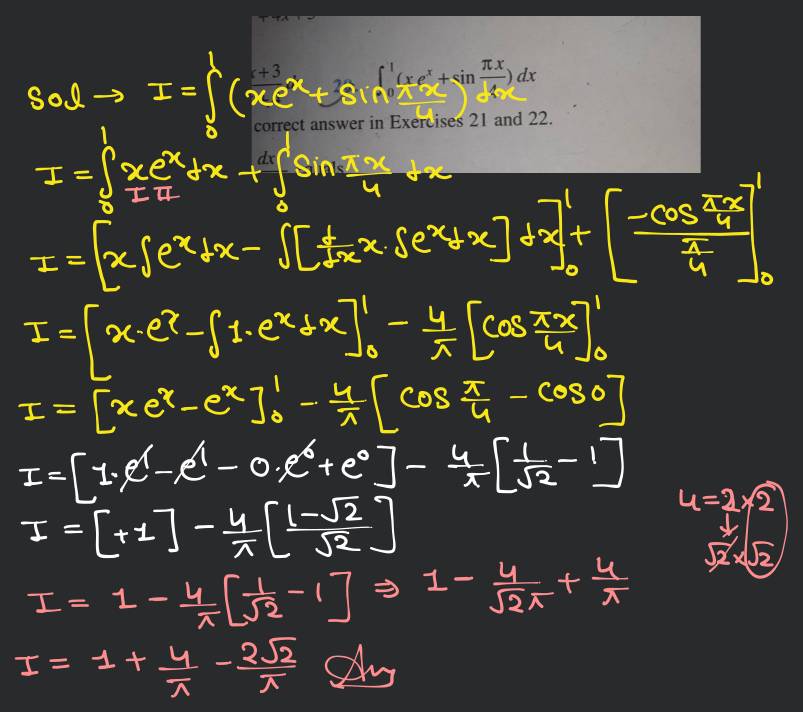 x+3
∫₀¹ (x eˣ + sin πx/4) dx
correct answer in Exercises 21 and 22.
Sol → I = ∫₀¹ (xeˣ + Sin πx/4) dx
I = ∫₀¹ xeˣ dx + ∫₀¹ Sin πx/4 dx
I II
I = [x∫eˣdx - ∫[d/dx x · ∫eˣdx] dx]₀¹ + [-cos πx/4 / π/4]₀¹
I = [x·eˣ - ∫1·eˣdx]₀¹ - 4/π [cos πx/4]₀¹
I = [xeˣ - eˣ]₀¹ - 4/π [cos π/4 - cos 0]
I = [1·e¹ - e¹ - 0·e⁰ + e⁰] - 4/π [1/√2 - 1]
I = [+1] - 4/π [1-√2/√2]
4 = 2×2
↓
√2×√2
I = 1 - 4/π [1/√2 - 1] ⇒ 1 - 4/√2π + 4/π
I = 1 + 4/π - 2√2/π Ans